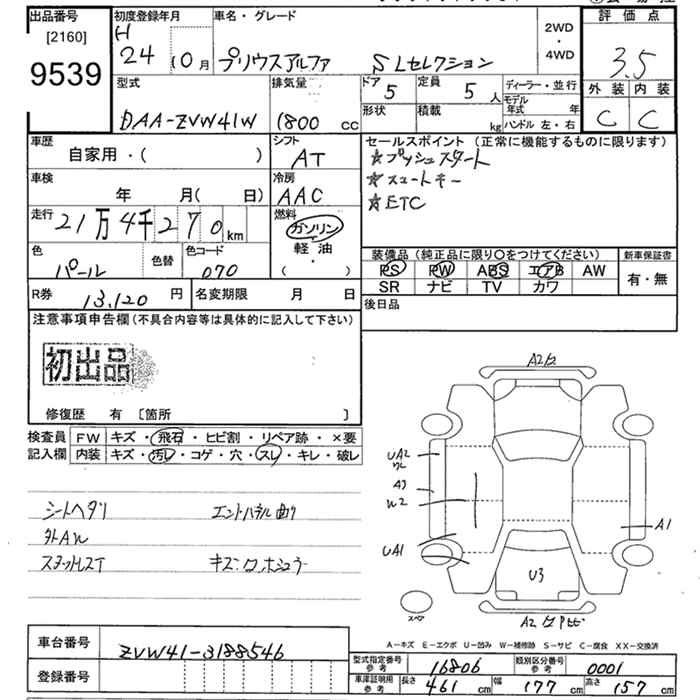 出品番号
[2160]
9539
初度登録年月
H
24 10月
車名・グレード
プリウスアルファ SLセレクション
2WD
・
4WD
評価点
3.5
外装 内装
C C
型式
DAA-ZVW41W
排気量
1800 cc
ドア
5
定員
5 人
形状
積載
kg
ディーラー・並行
モデル年式 年
ハンドル 左・右
車歴
自家用・( )
シフト
AT
車検
年 月( 日)
冷房
AAC
走行
21万4千270km
燃料
ガソリン
軽油
( ・ )
色
パール
色替
色コード
070
R券
13,120 円
名変期限 月 日
セールスポイント(正常に機能するものに限ります)
☆プッシュスタート
☆スマートキー
☆ETC
装備品(純正品に限り○をつけてください)
PS PW ABS エアB AW
SR ナビ TV カワ
新車保証書
有・無
後日品
注意事項申告欄(不具合内容等は具体的に記入して下さい)
初出品
修復歴 有 〔箇所 〕
検査員
記入欄
FW キズ・飛石・ヒビ割・リペア跡・×要
内装 キズ・汚レ・コゲ・穴・スレ・キレ・破レ
シートヘタリ
外AW
エンドパネル曲り
A2
UA2
A3
W2
UA1
A1
U3
スペア
A2
A−キズ E−エクボ U−凹み W−補修跡 S−サビ C−腐食 XX−交換済
車台番号
ZVW41-3188546
登録番号
型式指定番号
参考
16806
類別区分番号
参考
0001
車庫証明用
参考
長さ 461 cm 幅 177 cm 高さ 157 cm